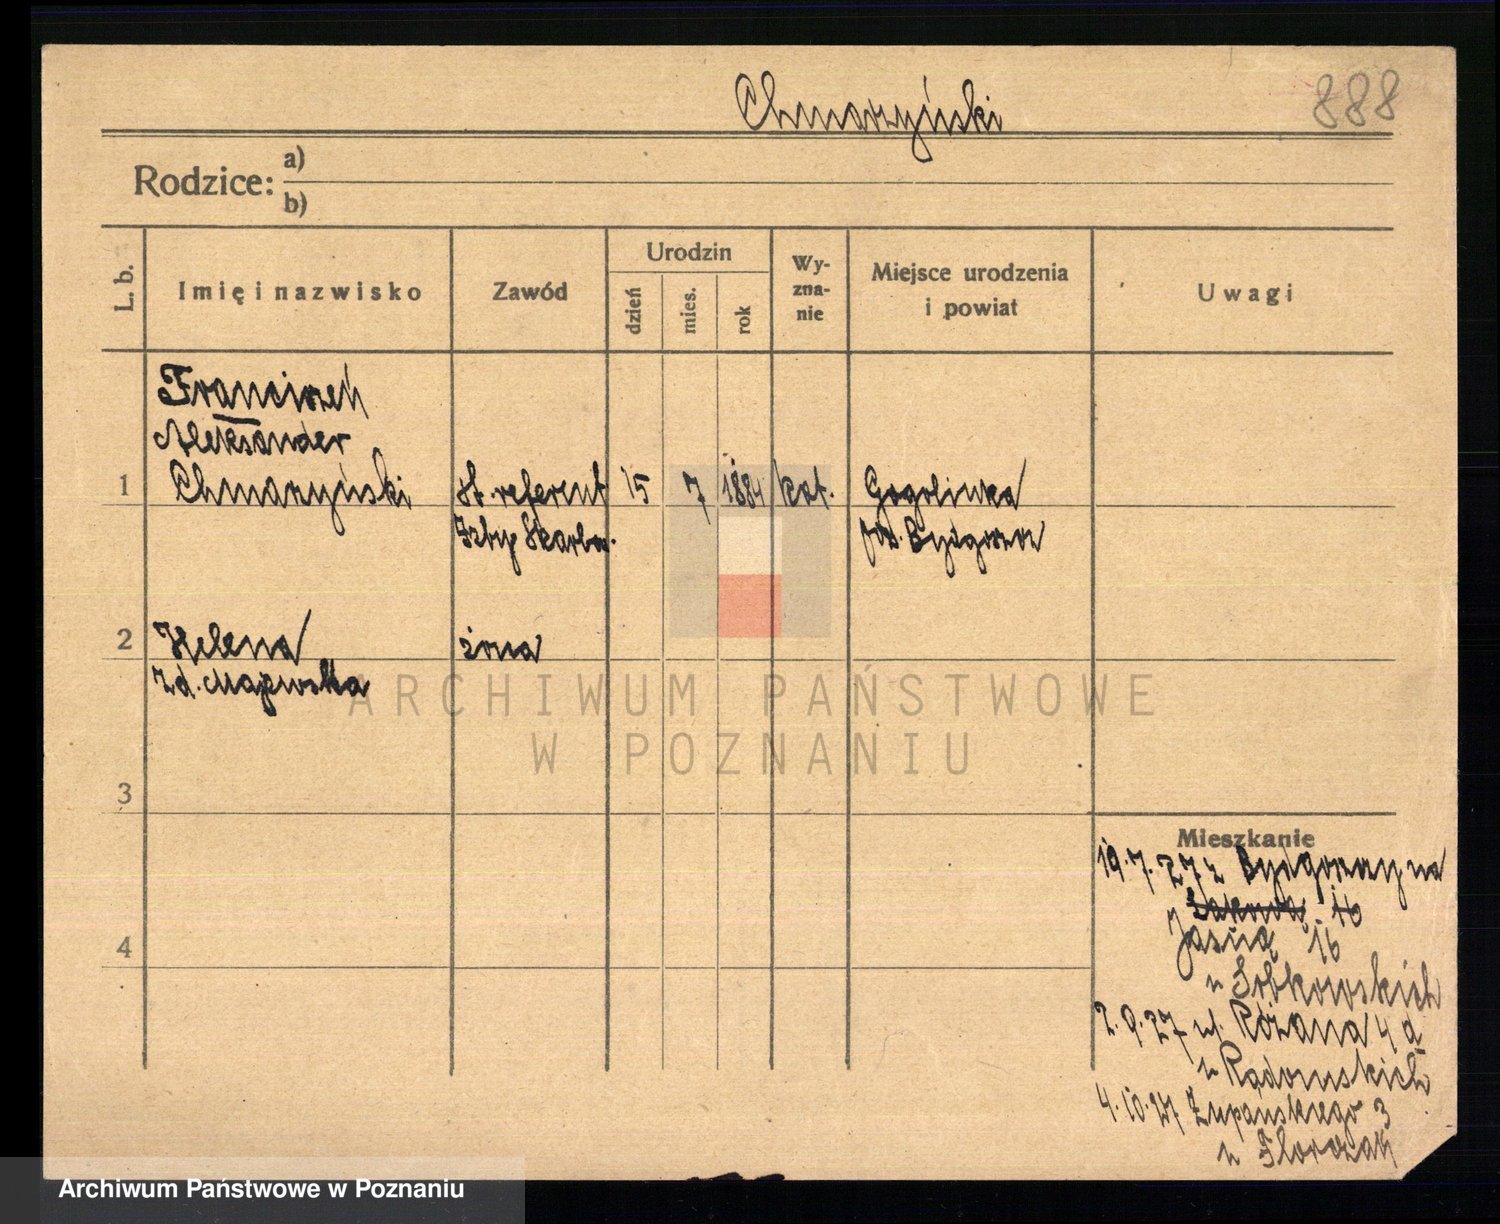 Chmarzyński
888
Rodzice: a)
b)
L. b.
Imię i nazwisko
Zawód
Urodzin
dzień
mies.
rok
Wy-
zna-
nie
Miejsce urodzenia
i powiat
Uwagi
Franciszek
Aleksander
1 Chmarzyński St. referent 15 7 1884 kat. Gogolinka
Izby Skarbow. pow. Bydgoszcz
2 Helena żona
zd. Majewska
ARCHIWUM PAŃSTWOWE
W POZNANIU
3
4
Mieszkanie
19.7.27 z Bydgoszczy na
16
Jasną 16
u Sobkowskich
2.9.27 ul. Różana 4a
u Radomskich
4.10.27 Żupańskiego 3
u Florczak
Archiwum Państwowe w Poznaniu